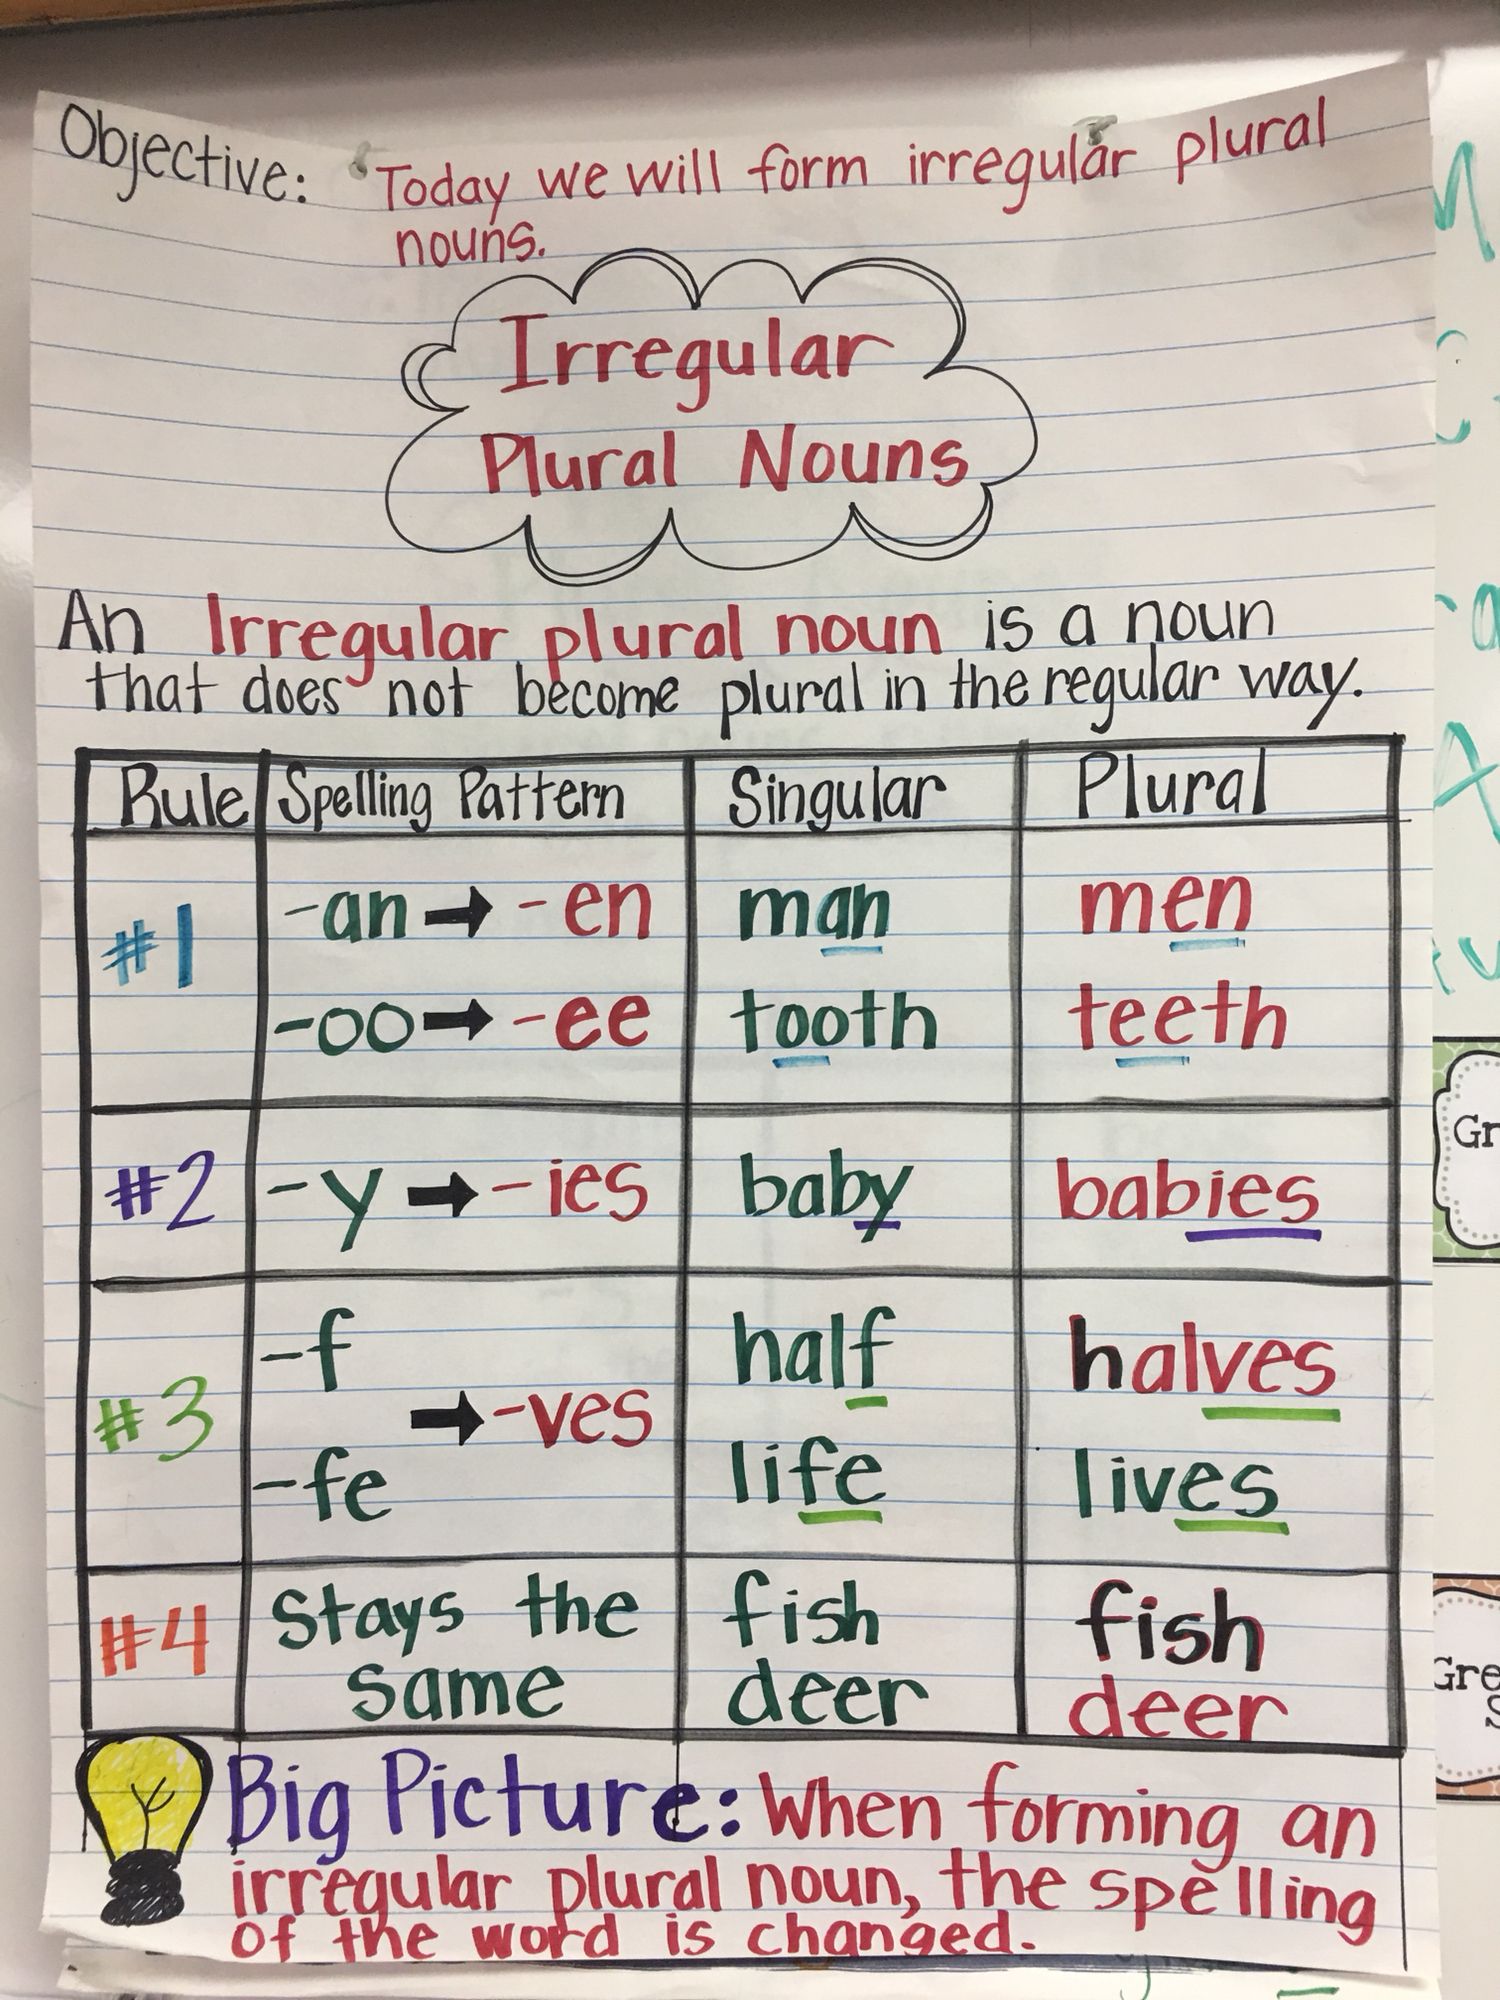 Objective: Today we will form irregular plural
nouns.
Irregular
Plural Nouns
An Irregular plural noun is a noun
that does not become plural in the regular way.
Rule Spelling Pattern Singular Plural
#1 -an → -en man men
-oo → -ee tooth teeth
#2 -y → -ies baby babies
#3 -f → -ves half halves
-fe life lives
#4 Stays the fish fish
same deer deer
Big Picture: When forming an
irregular plural noun, the spelling
of the word is changed.
Gr
Gre
S